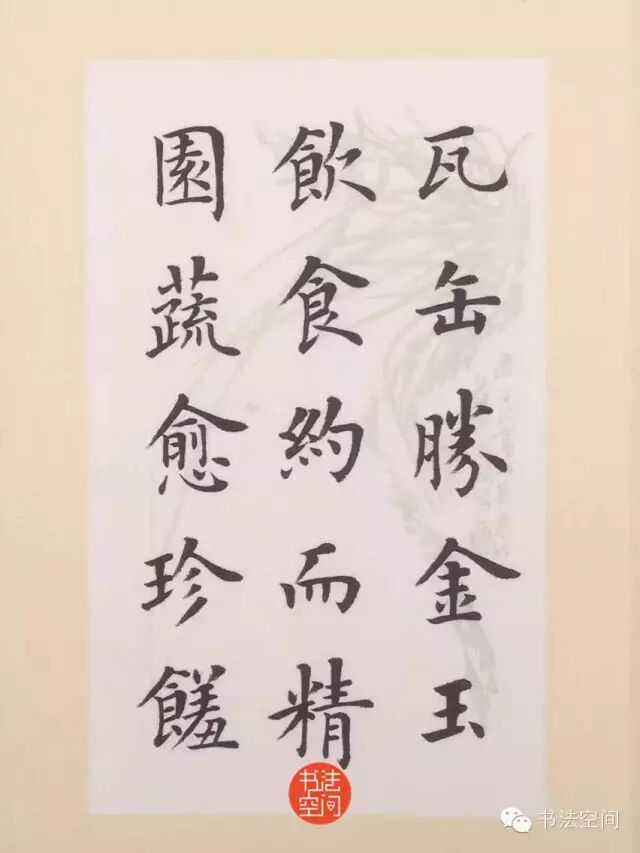 瓦缶勝金玉
飲食約而精
園蔬愈珍饈
书法空间
书法空间